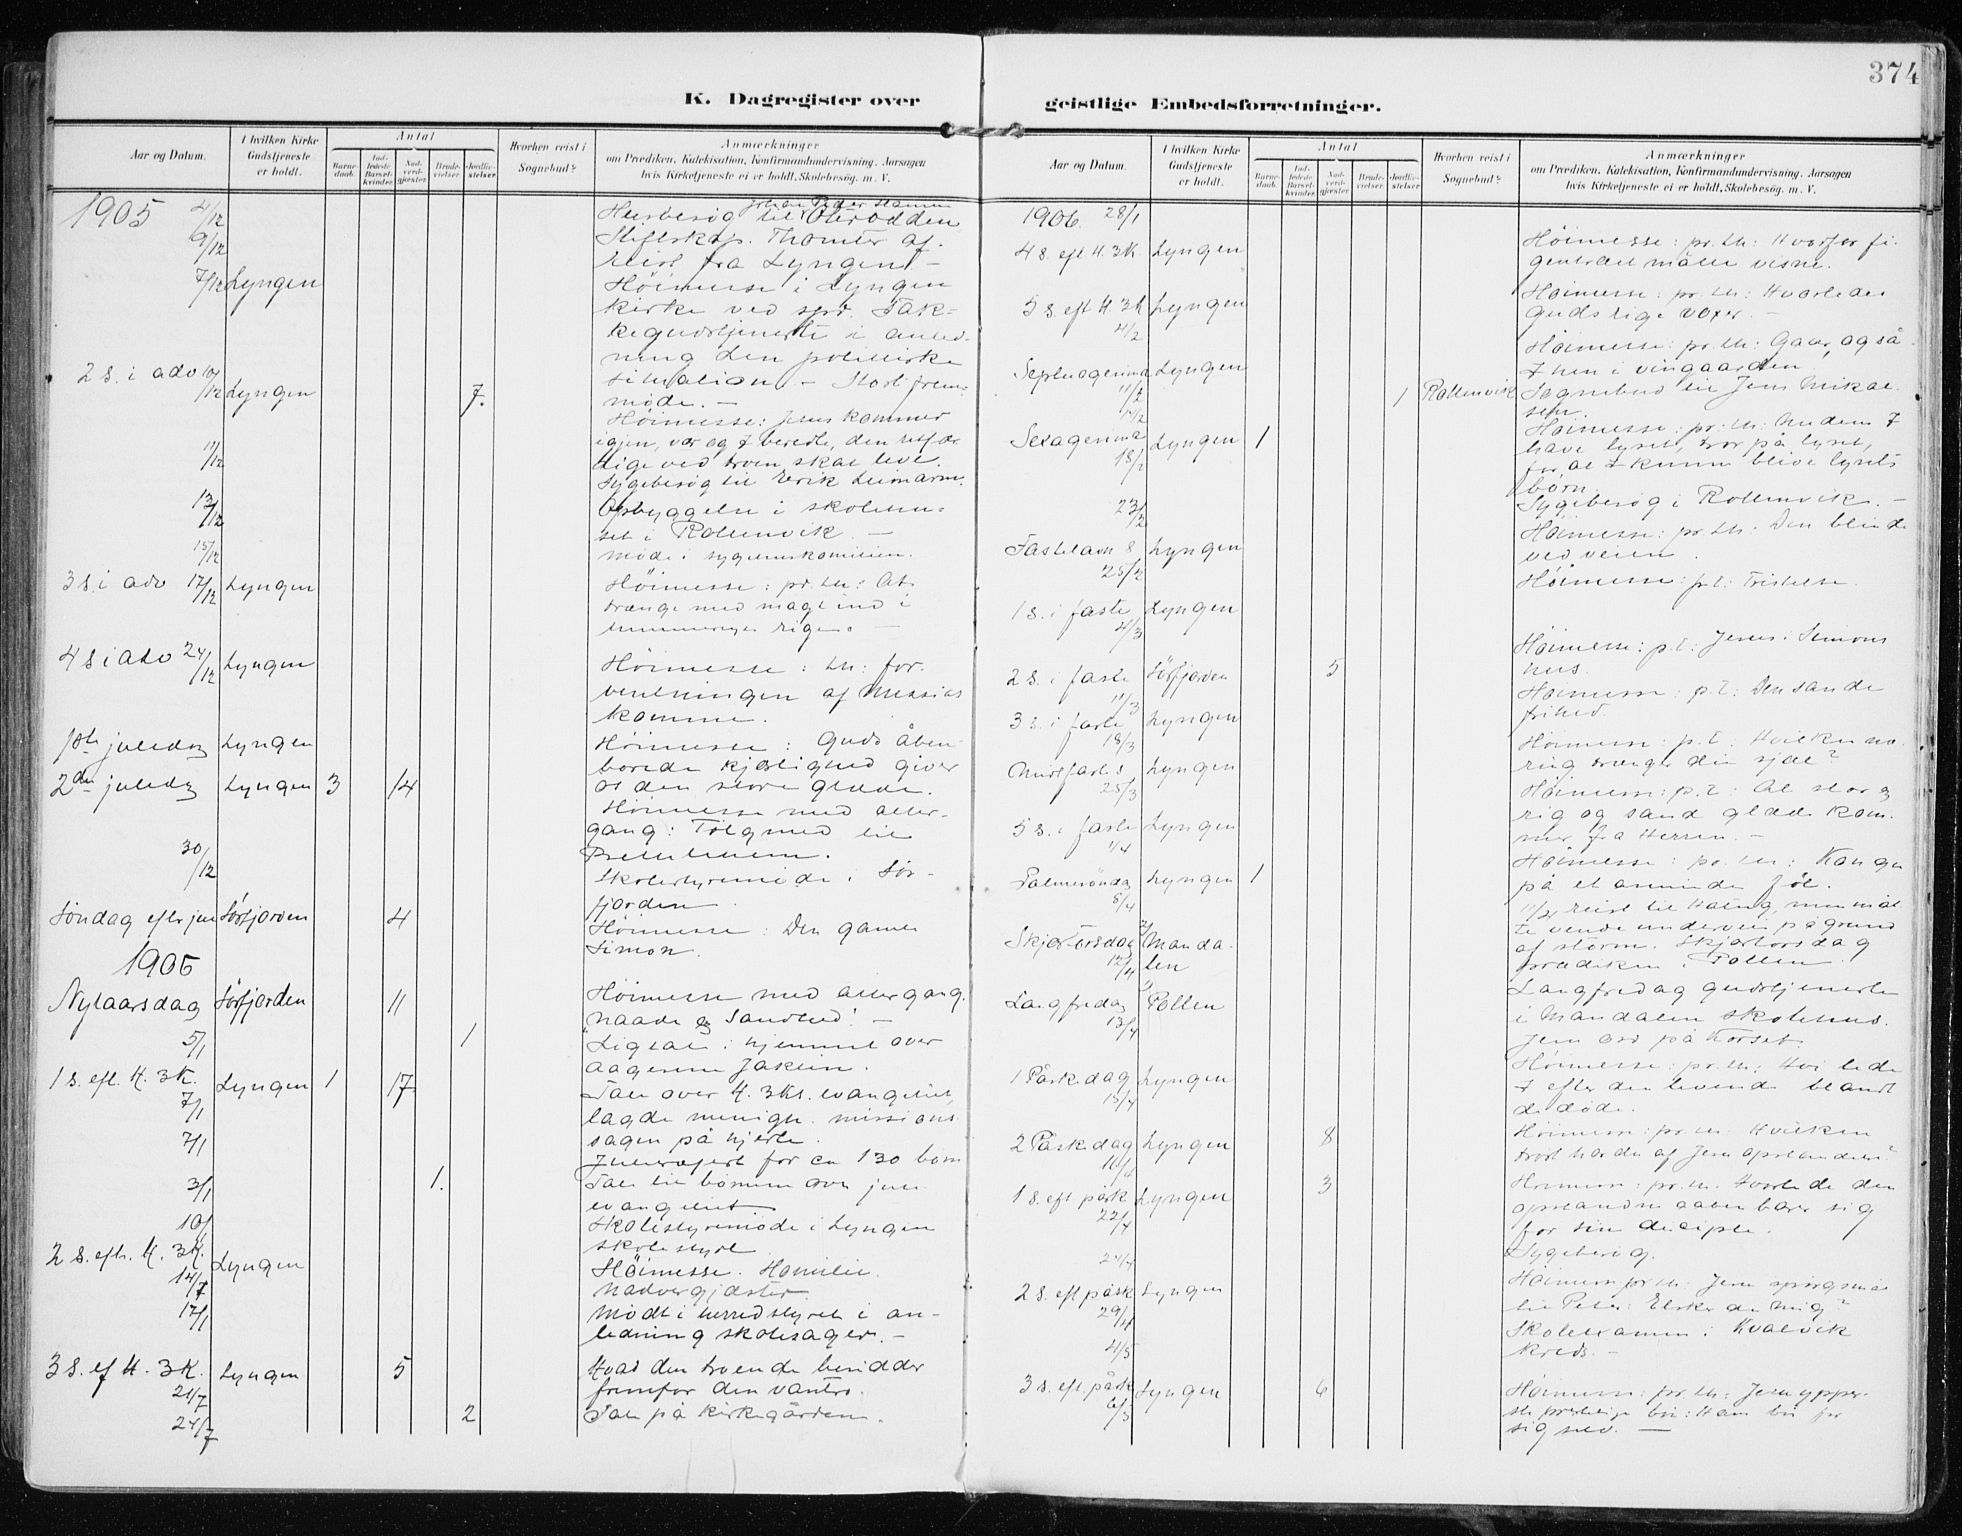 374
K. Dagregister over
geistlige Embedsforretninger.
Aar og Datum.
I hvilken Kirke Gudstjeneste er holdt.
Antal
Barne-daab.
Ind-ledede Barsel-kvinder.
Nad-verd-gjester.
Brude-vielser.
Jordfæ-stelser.
Hvorhen reist i Sognebud?
Anmærkninger
om Prædiken, Katekisation, Konfirmandundervisning, Aarsagen
hvis Kirketjeneste ei er holdt, Skolebesøg, m. V.
1905 4/12 Husbesøg til
9/12 Stiftskap. Thomter af-
reist fra Lyngen. –
7/12 Lyngen Höimesse i Lyngen
kirke ved spr. Tak-
kegudstjeneste i anled-
ning den politiske
situation. – Stort frem-
møde. –
2 s. i adv 10/12 Lyngen 7. Höimesse: Jesus kommer
igjen, vær og I beredte, den retfær
dige ved troen skal leve.
11/12 Sygebesøg til Erik
13/12 Opbyggelse i skolehu-
set i Rottenvik. –
15/12 Møde i
3 s. i adv 17/12 Lyngen Höimesse: pr. th: At
trænge med magt ind i
rige. –
4 s i adv 24/12 Lyngen Höimesse: th: for-
ventningen af Messias
komme.
1ste juledag Lyngen Höimesse: Guds åben-
barede kjærlighed giver
os den store glæde.
2den juledag Lyngen 3 14 Höimesse med alter-
gang: Følg med til
Betlehem.
30/12 Skolestyremøde i Sør-
fjorden.
Søndag efter jul Sørfjorden 4 Höimesse: Den gamle
Simon.
1906
Nytaarsdag Sørfjorden 11 Höimesse med altergang.
"Naade og Sandhed". –
5/1 1 Ligtale i hjemmet over
1 s. eft. H. 3K. 7/1 Lyngen 1 17 Tale over H. 3Ks. evangeliet,
lagde menigh. missions
sagen på hjerte.
7/1 for ca 130 børn
Tale til børnene over jule
evangeliet
3/1 1.
10/1 Skolestyremøde i Lyngen
skolestyre
2 s. efh. H. 3K. 14/1 Lyngen Höimesse. Homilie.
Nadvergjæster
17/1 Mødt i herredstyret i an-
ledning skolesager. –
3 s. ef H. 3K. 21/1 Lyngen 5 Hvad den troende besidder
fremfor den vantro.
24/1 2 Tale på kirkegården.
Aar og Datum.
I hvilken Kirke Gudstjeneste er holdt.
Antal
Barne-daab.
Ind-ledede Barsel-kvinder.
Nad-verd-gjester.
Brude-vielser.
Jordfæ-stelser.
Hvorhen reist i Sognebud?
Anmærkninger
om Prædiken, Katekisation, Konfirmandundervisning, Aarsagen
hvis Kirketjeneste ei er holdt, Skolebesøg, m. V.
1906. 28/1
4 s. eft H. 3K. Lyngen Höimesse: pr. th: Hvorfor fi-
gentræet måtte visne.
5 s. eft H. 3K 4/2 Lyngen Höimesse: pr. th: Hvorledes
Guds rige voxer. –
Septuagesima 11/2 Lyngen Höimesse: pr. th: Gaar også
I hen i vingaarden
1 Rottenvik Sognebud til Jens Mikal-
sen.
Sexagesima 18/2 Lyngen 1 Höimesse: pr. th: Medens I
have lyset, tror på lyset,
for at I kunne blive lysets
børn.
23/2 Sygebesøg i Rottenvik. –
Fastelavn s 25/2 Lyngen Höimesse: pr. th: Den blinde
ved veien.
1 s. i faste 4/3 Lyngen Höimesse: p. t: Fristelse.
2 s. i faste 11/3 Sørfjorden 5 Höimesse: p. t: Jesus i Simons
hus.
3 s. i faste 18/3 Lyngen Höimesse: p. t: Den sande
frihed.
Midtfaste s 25/3 Lyngen Höimesse: p. t: Hvilken næ-
ring trænger din sjæl?
5 s. i faste 1/4 Lyngen Höimesse: p. t: At stor og
rig og sand glæde kom-
mer fra Herren. –
Palmesöndag 8/4 Lyngen 1 Höimesse: pr. th: Kongen
på et aseninde føl.
11/4 reist til men måt
te vende underveis på grund
af storm. Skjærtorsdag
prædiken i Pollen.
Skjærtorsdag 12/4 Manda-
len
Langfredag 13/4 Pollen Langfredag gudstjeneste
i Mandalen skolehus.
Jesu ord på Korset.
1 Påskedag 15/4 Lyngen Höimesse: pr. th: Hvi lede
I efter den levende blandt
de døde.
2 Påskedag 16/4 Lyngen 8 Höimesse: pr. th. Hvilken
trøst har du af Jesu opstandelse?
1 s. eft påsk 22/4 Lyngen 3 Höimesse: pr. th. Hvorlede den
opstandne aabenbarer sig
for sin disciple.
24/4 Sygebesøg.
2 s. eft påsk 29/4 Lyngen Höimesse pr. th: Jesu spörgsmål
til Peter: Elsker du mig?
4/5 Skoleexamen i Kvalvik
kreds. –
3 s. eft. påsk 6/5 Lyngen 6 Höimesse: pr. th: Jesu ypper-
ste præstelige bøn: Han bør for
sig selv. –